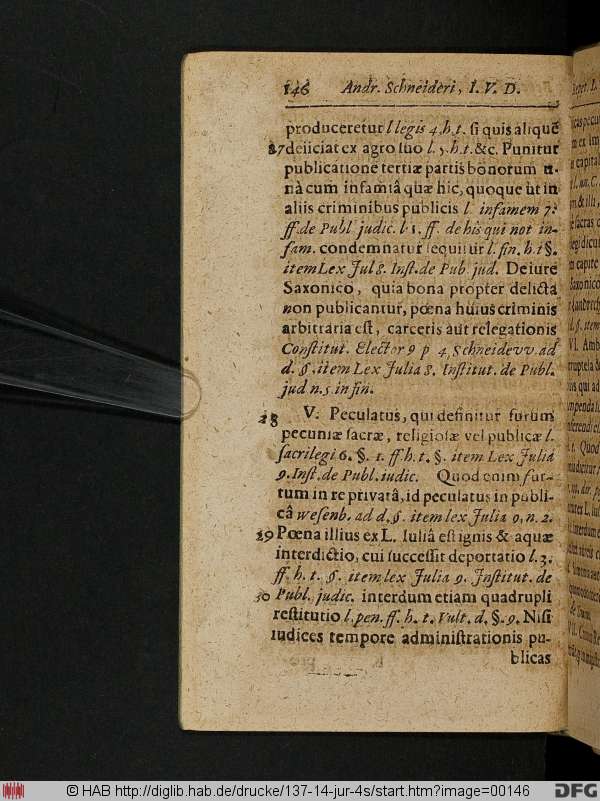 146 Andr. Schneideri, I. V. D.
produceretur l legis 4. h. t. si quis aliquẽ
27 deiiciat ex agro suo l. 5. h. t. &c. Punitur
publicatione tertiæ partis bonorum u-
nà cum infamiâ quæ hic, quoque ut in
aliis criminibus publicis l infamem 7.
ff. de Publ judic. l 1. ff. de his qui not in-
fam. condemnatur sequitur l. fin. h. t §.
item Lex Jul 8. Inst. de Pub jud. De iure
Saxonico, quia bona propter delicta
non publicantur, pœna huius criminis
arbitraria est, carceris aut relegationis
Constitut. Elector 9 p 4. Schneidevv. ad
d. §. item Lex Julia 8. Institut. de Publ.
jud n. 5. in fin.
28 V. Peculatus, qui definitur furum
pecuniæ sacræ, religiosæ vel publicæ l.
sacrilegi 6. §. 1. ff. h. t. §. item Lex Julia
9. Inst. de Publ. iudic. Quod enim fur-
tum in re privatâ, id peculatus in publi-
câ wesenb. ad d. §. item lex Julia 9. n. 2.
29 Pœna illius ex L. Iuliâ est ignis & aquæ
interdictio, cui successit deportatio l. 3.
ff. h. t. §. item lex Julia 9. Institut. de
30 Publ. judic. interdum etiam quadrupli
restitutio l. pen. ff. h. t. Vult. d. §. 9. Nisi
iudices tempore administrationis pu-
blicas
© HAB http://diglib.hab.de/drucke/137-14-jur-4s/start.htm?image=00146
DFG